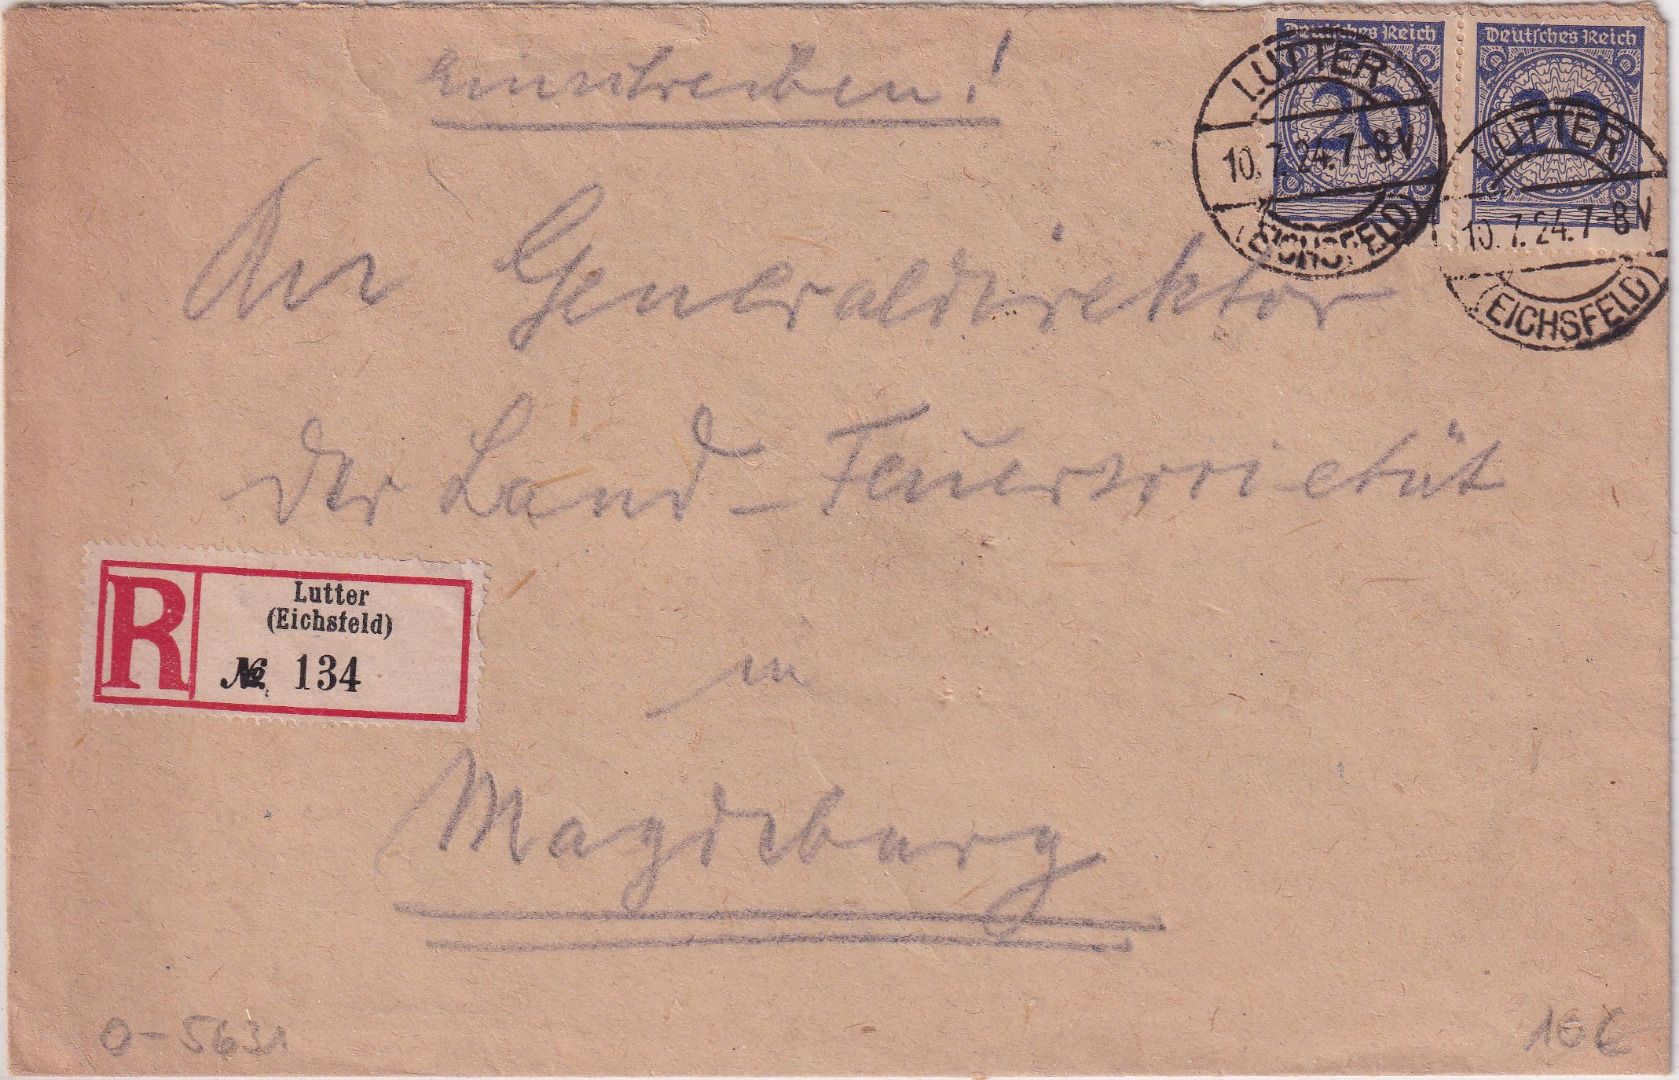 einschreiben!
Deutsches Reich
20
Deutsches Reich
20
LUTTER
10.7.24.7-8V
(EICHSFELD)
LUTTER
10.7.24.7-8V
(EICHSFELD)
An Generaldirektor
der Land-Feuersozietät
in
Magdeburg
R
Lutter
(Eichsfeld)
№ 134
O-5631
10€